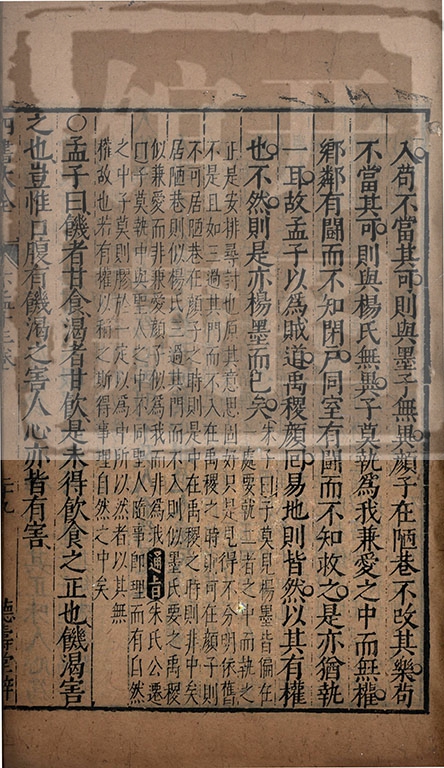 入苟不當其可則與墨子無異顏子在陋巷不改其樂苟
不當其可則與楊氏無異子莫執為我兼愛之中而無權
鄉鄰有鬪而不知閉戶同室有鬪而不知救之是亦猶執
一耳故孟子以為賊道禹稷顏回易地則皆然以其有權
也不然則是亦楊墨而已矣
朱子曰子莫見楊墨皆偏在
一處要就二者之中而執之
正是安排尋討也原其意思固好只是見得不分明依舊
不是且如三過其門而不入在禹稷之時則可在顏子則
不可居陋巷在顏子之時則是中在禹稷之時則非中矣
居陋巷則似楊氏三過其門而不入則似墨氏要之禹稷
似兼愛而非兼愛顏子似為我而非為我 通旨 朱氏公遷
曰子莫執中與聖人之中不同聖人隨事即理而有自然
之中子莫則膠於一定以為中所以然者以其無
權故也若有權以稱之斯得事理自然之中矣
○孟子曰饑者甘食渴者甘飲是未得飲食之正也饑渴害
之也豈惟口腹有饑渴之害人心亦皆有害
四書大全 下孟十三卷 二十九 德壽堂梓